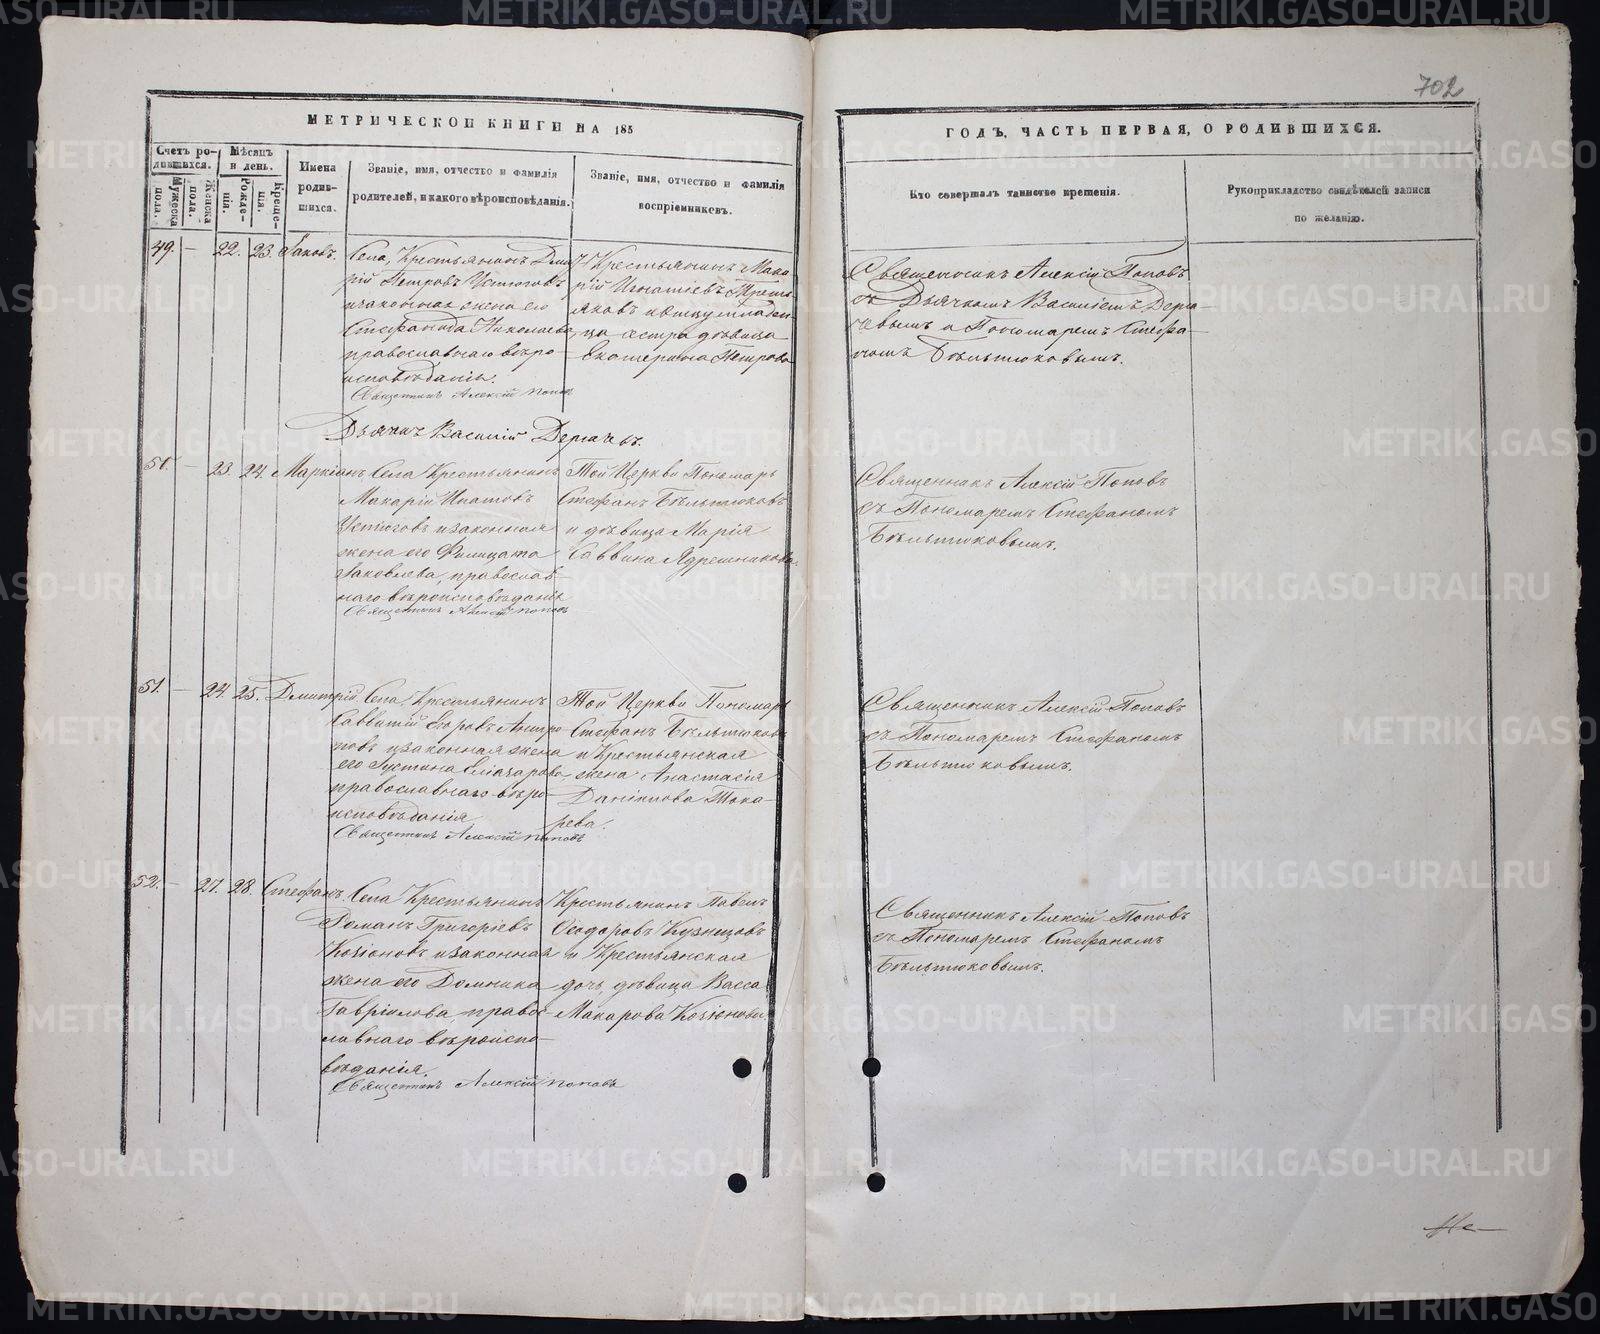 702
МЕТРИЧЕСКОЙ КНИГИ НА 185
ГОДЪ, ЧАСТЬ ПЕРВАЯ, О РОДИВШИХСЯ.
Счетъ ро-
дившихся.
Мужеска
пола.
Женска
пола.
Мѣсяцъ
и день.
Рожде-
нія.
Креще-
нія.
Имена
родив-
шихся.
Званіе, имя, отчество и фамилія
родителей, и какого вѣроисповѣданія.
Званіе, имя, отчество и фамилія
воспріемниковъ.
Кто совершалъ таинство крещенія.
Рукоприкладство свидѣтелей записи
по желанію.
49. — 22. 23. Іаковъ.
Села, Крестьянинъ Дми
трій Петровъ Устюговъ
и законная жена его
Стефанида Николаева,
православнаго вѣро-
исповѣданія.
Священникъ Алексій Поповъ
Дьячекъ Василій Дергачевъ.
Крестьянинъ Мака-
рій Игнатіевъ Треть
яковъ и отцу младен
ца сестра дѣвица
Екатерина Петрова
Священникъ Алексій Поповъ
съ Дьячкомъ Василіемъ Дерга-
чевымъ и Пономаремъ Стефа-
номъ Бѣльтюковымъ.
50. — 23. 24. Маркіанъ
Села Крестьянинъ
Макарій Ипатовъ
Устюговъ и законная
жена его Филицата
Іаковлева, православ-
наго вѣроисповѣданія
Священникъ Алексій Поповъ
Той Церкви Пономарь
Стефанъ Бѣльтюковъ
и дѣвица Марія
Саввина Ядрешникова.
Священникъ Алексій Поповъ
съ Пономаремъ Стефаномъ
Бѣльтюковымъ.
51. — 24. 25. Дмитрій.
Села, Крестьянинъ
Савватій
и законная жена
его Іустина
православнаго вѣро-
исповѣданія
Священникъ Алексій Поповъ
Той Церкви Пономарь
Стефанъ Бѣльтюковъ
и Крестьянская
жена Анастасія
Даніилова Тока-
рева.
Священникъ Алексій Поповъ
съ Пономаремъ Стефаномъ
Бѣльтюковымъ.
52. — 27. 28. Стефанъ.
Села Крестьянинъ
Романъ Григоріевъ
Козіоновъ и законная
жена его Домника
Гавріилова, правос-
лавнаго вѣроиспо-
вѣданія.
Священникъ Алексій Поповъ
Крестьянинъ Павелъ
Ѳеодоровъ Кузнецовъ
и Крестьянская
дочь, дѣвица Васса
Макарова Козіонова
Священникъ Алексій Поповъ
съ Пономаремъ Стефаномъ
Бѣльтюковымъ.
METRIKI.GASO-URAL.RU